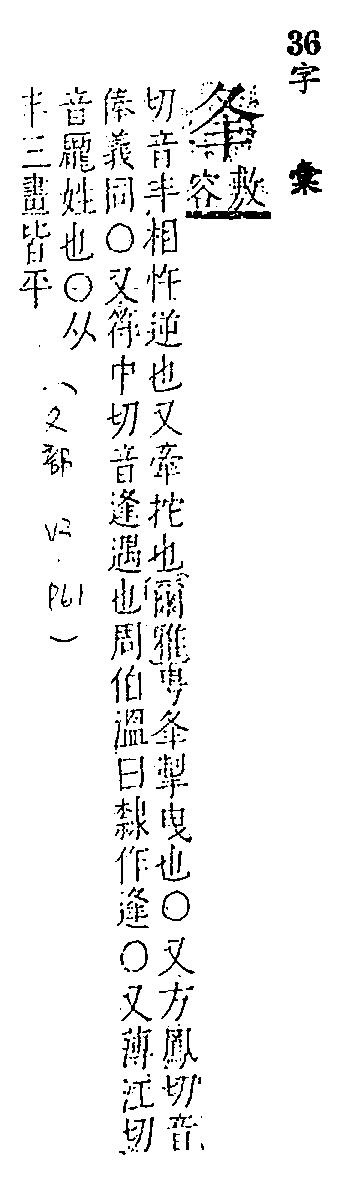 36 字彙
夆 敷容
切音丰相忤逆也又牽拕也爾雅甹夆掣曳也〇又方鳳切音
俸義同〇又符中切音逢遇也周伯溫曰隸作逢〇又薄江切
音龐姓也〇从
丰三畫皆平
(夂部 V2.P61)